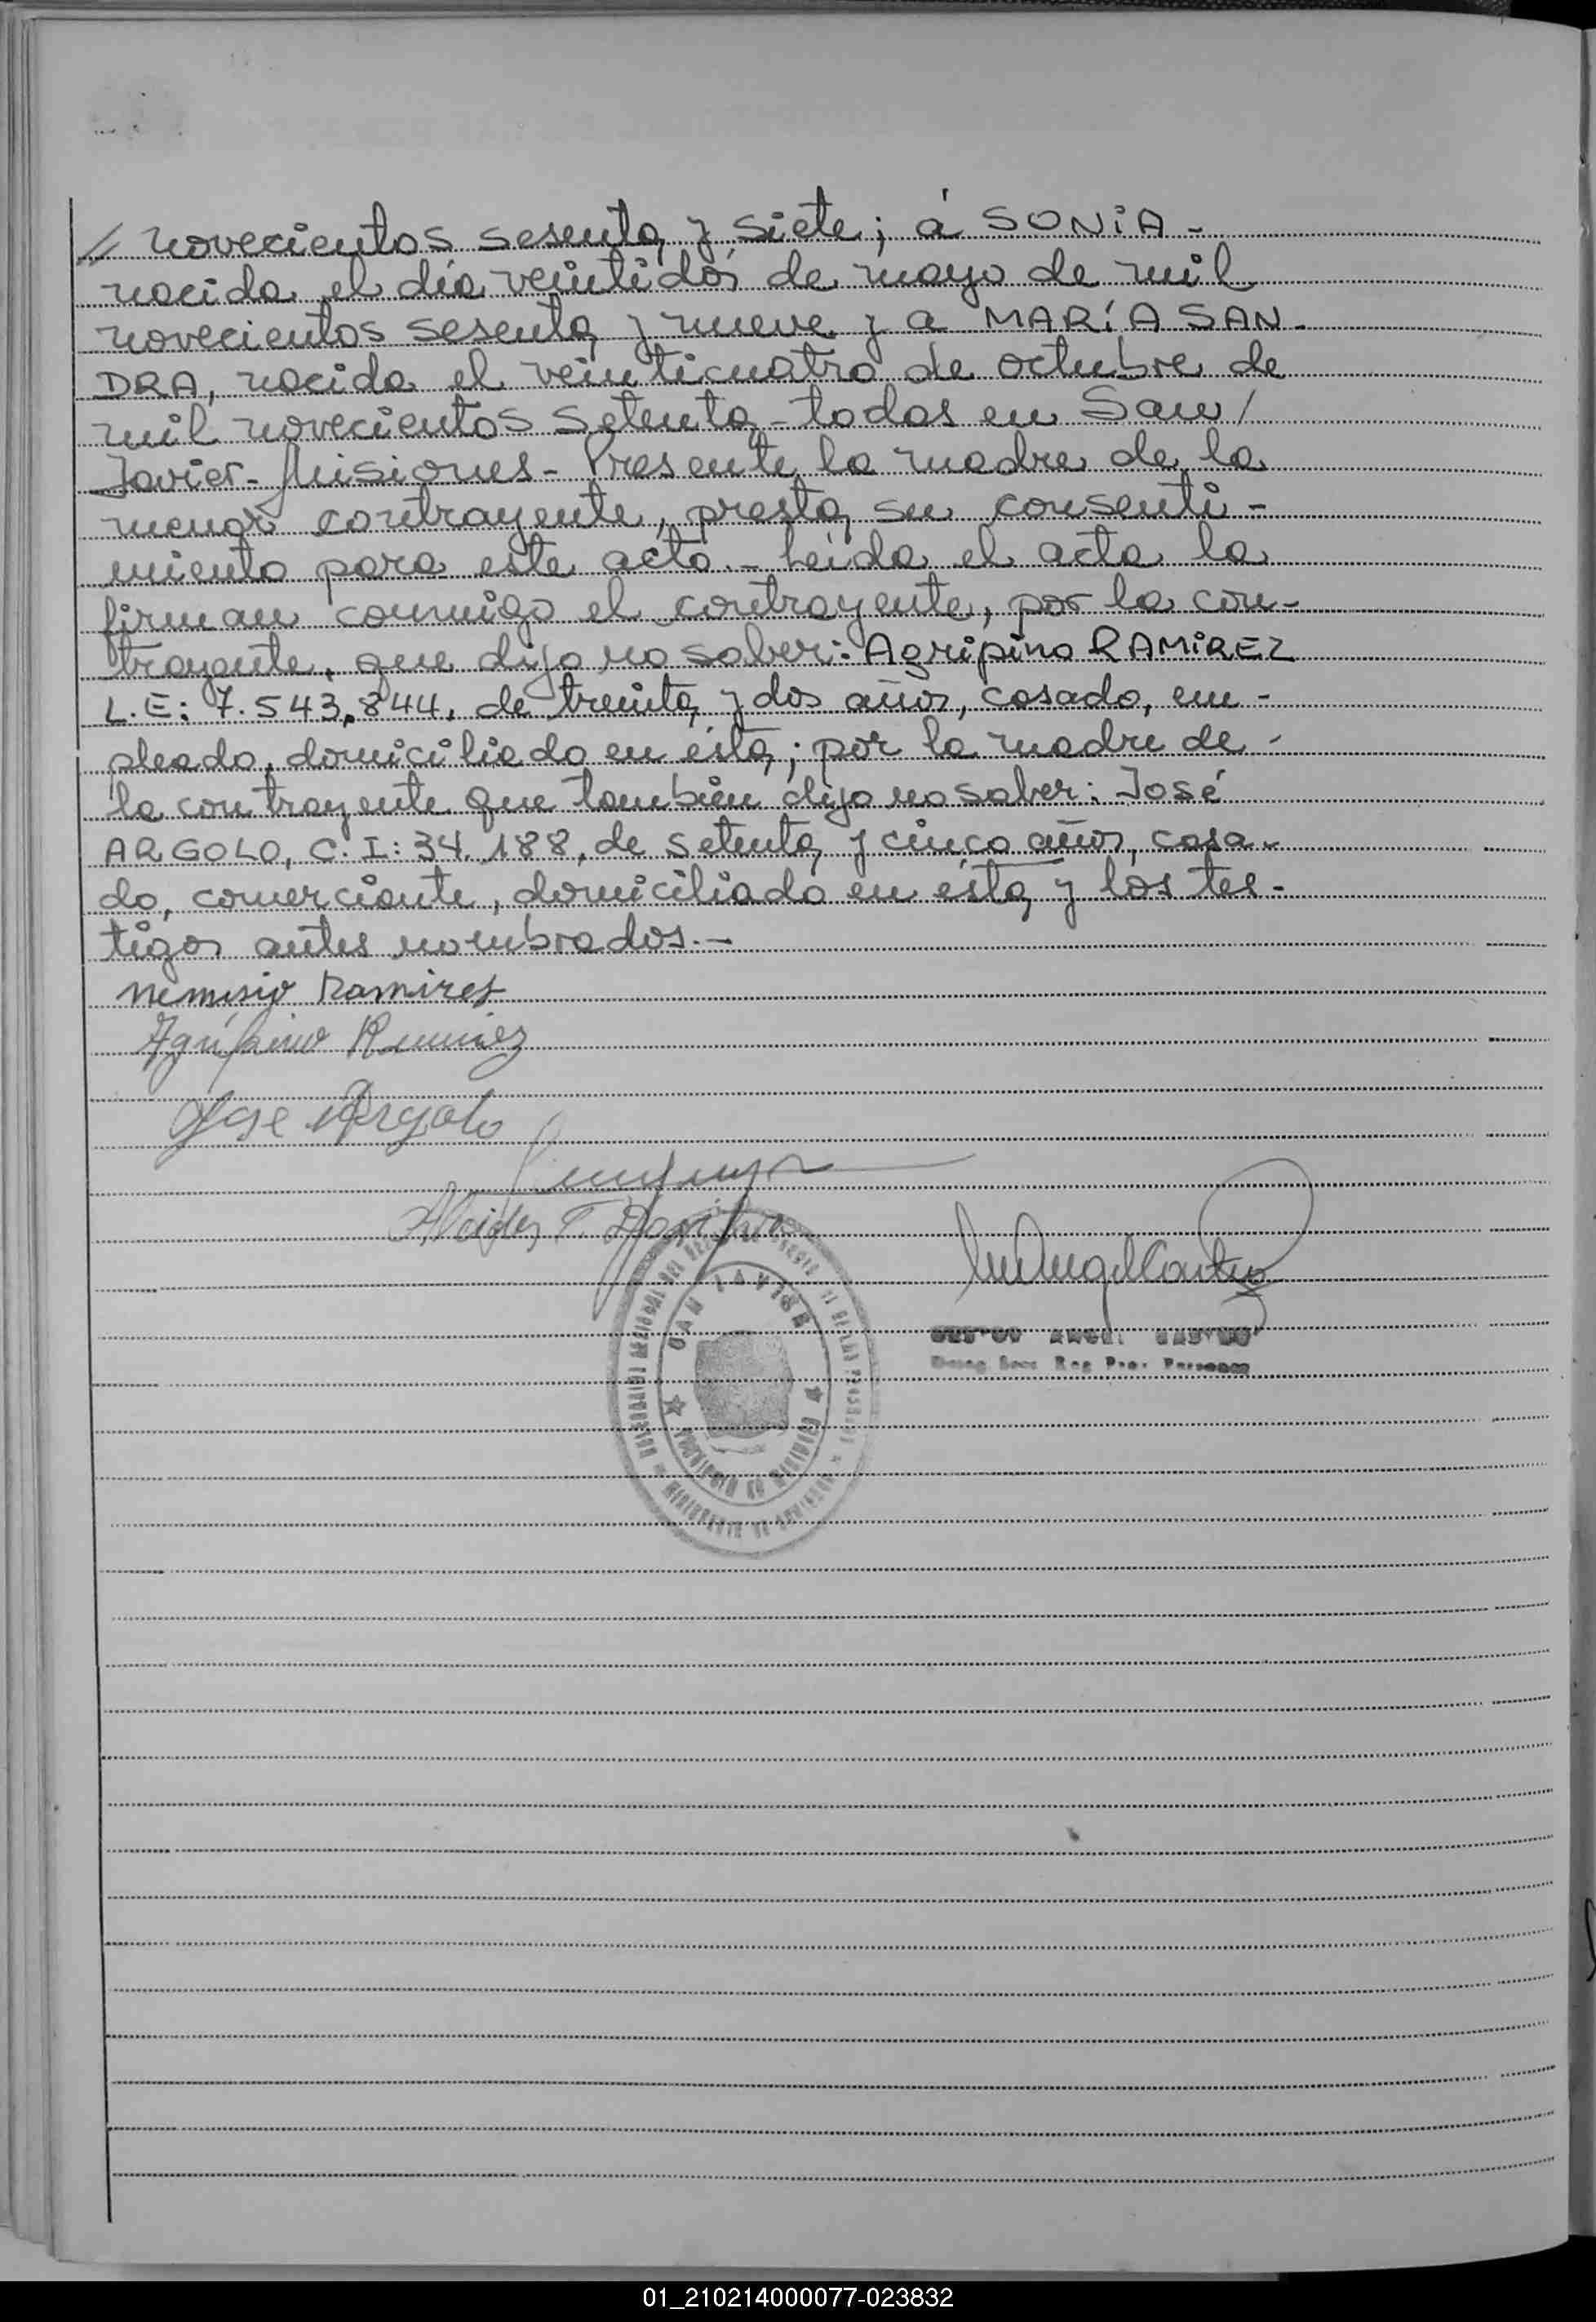 // novecientos sesenta y siete; á SONIA -
nacida el día veintidós de mayo de mil
novecientos sesenta y nueve y a MARÍA SAN-
DRA, nacida el veinticuatro de octubre de
mil novecientos setenta - todas en San /
Javier - Misiones - Presente la madre de la
menor contrayente, presta su consenti-
miento para este acto. - Leída el acta la
firman conmigo el contrayente, por la con-
trayente, que dijo no saber: Agripino RAMIREZ
L.E: 7.543.844, de treinta y dos años, casado, em-
pleado, domiciliado en ésta; por la madre de -
la contrayente que también dijo no saber: José
ARGOLO, C.I: 34.188, de setenta y cinco años, casa-
do, comerciante, domiciliado en ésta y los tes-
tigos antes nombrados. -
Nemesio Ramires
Agripino Ramirez
Jose Argolo
Alcides T.
SAN JAVIER
01_210214000077-023832